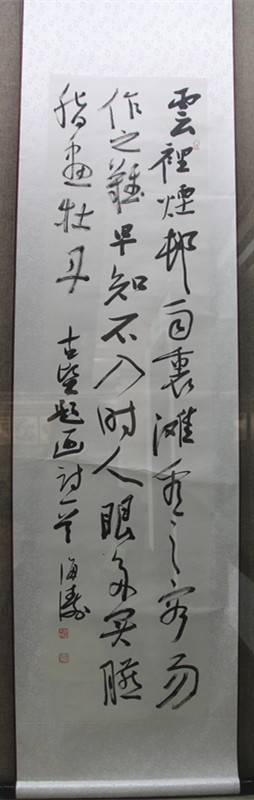 雲裡煙邨雨裏灘看之容易
作之難早知不入时人眼多買臙
脂畫牡丹 古賢题画詩一首 海濤